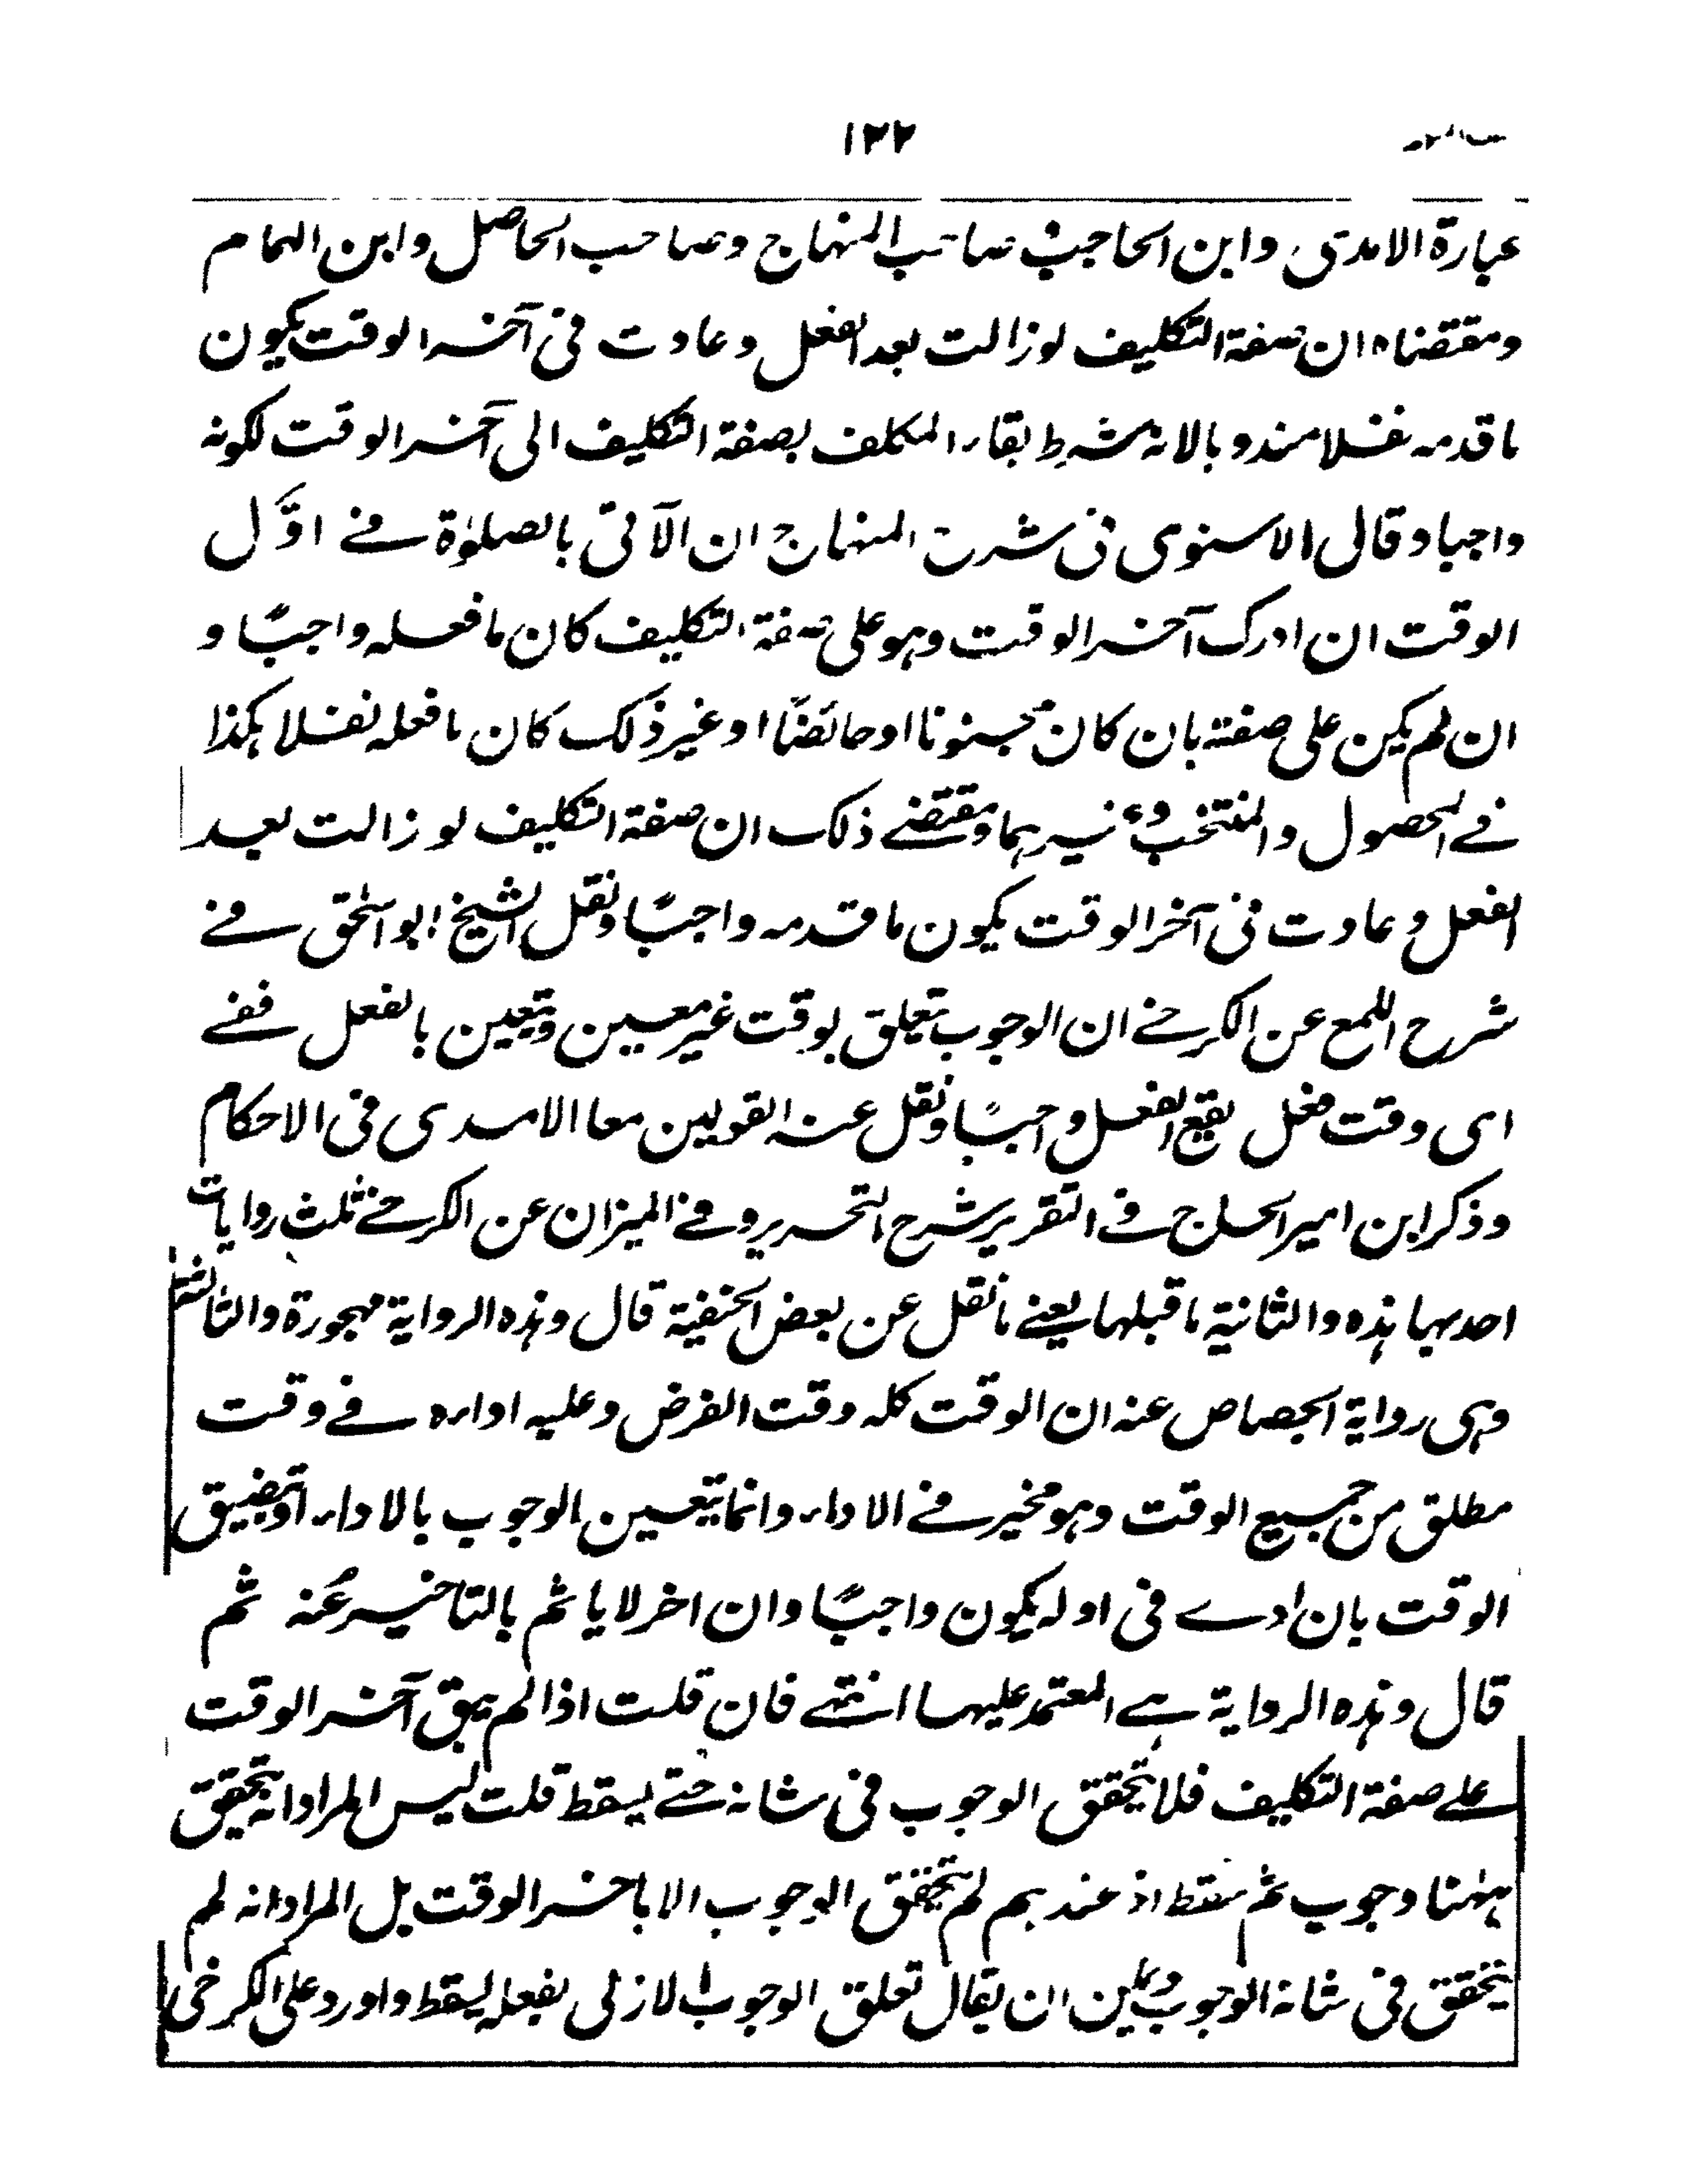 ١٢٢
عبارة الامدى وابن الحاجب وصاحب المنهاج وصاحب الحاصل وابن الهمام
ومقتضاه ان صفة التكليف لو زالت بعد الفعل وعادت فى آخر الوقت يكون
ما قدمه نفلا مندوبا لانه شرط بقاء المكلف بصفة التكليف الى آخر الوقت لكونه
واجبا وقال الاسنوى فى شرح المنهاج ان الآتى بالصلوٰة فے اوَّل
الوقت ان ادرك آخر الوقت وهو على صفة التكليف كان ما فعله واجبًا و
ان لم يكن على صفته بان كان مجنونا او حائضًا او غير ذٰلك كان ما فعله نفلا هكذا
فے المحصول والمنتخب وغيرهما ومقتضے ذلك ان صفة التكليف لو زالت بعد
الفعل وعادت فى آخر الوقت يكون ما قدمه واجبًا ونقل الشيخ ابو اسحٰق فے
شرح اللمع عن الكرخے ان الوجوب يتعلق بوقت غير معين ويتعين بالفعل ففے
اى وقت فعل يقع الفعل واجبًا ونقل عنه القولين معا الامدى فى الاحكام
وذكر ابن امير الحاج فے التقرير شرح التحرير وفے الميزان عن الكرخے ثلث روايات
احدىها هذه والثانية ما قبلها يعنے ما نقل عن بعض الحنفية قال وهذه الرواية مهجورة والثالثة
وهى رواية الجصاص عنه ان الوقت كله وقت الفرض وعليه اداءه فے وقت
مطلق من جميع الوقت وهو مخير فے الاداء وانما يتعين الوجوب بالاداء او بتضيق
الوقت بان ادے فى اوله يكون واجبًا وان اخر لا ياثم بالتاخير عنه ثم
قال وهذه الرواية هے المعتمد عليها انتهے فان قلت اذا لم يبق آخر الوقت
علے صفة التكليف فلا يتحقق الوجوب فى شانه حتے يسقط قلت ليس المراد انه يتحقق
ههنا وجوب ثم سقط اذ عندهم لم يتحقق الوجوب الا باخر الوقت بل المراد انه لم
يتحقق فى شانه الوجوب ويمكن ان يقال تعلق الوجوب الازلى بفعله يسقط واورد على الكرخى